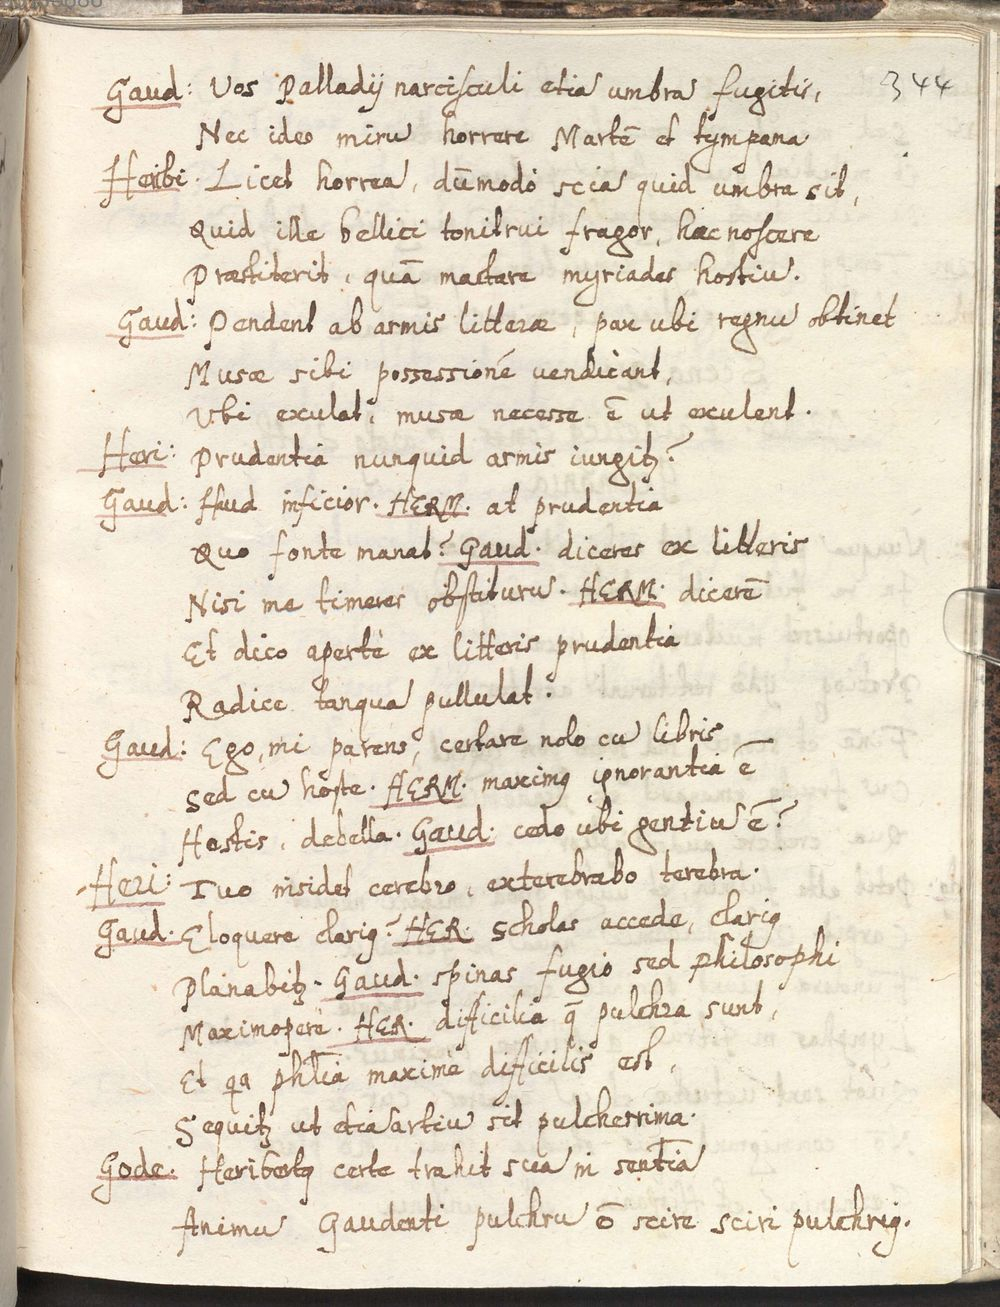 344
Gaud: Vos Palladij narcisculi etiā umbrā fugitis,
Nec ideo mirū horrere Martē et tympana
Heribe: Licet horrea, dūmodo sciā quid umbra sit,
Quid ille bellici tonitrui fragor, haec noscere
Praestiterit, quā mactare myriades hostiū.
Gaud: Pendent ab armis litterae, pax ubi regnū obtinet
Musae sibi possessionē vendicant,
Ubi exulat, musae necesse ē ut exulent.
Heri: Prudentia nunquid armis iungitꝛ?
Gaud: Haud inficior. HERM. at prudentia
Quo fonte manat? Gaud. diceres ex litteris
Nisi me timeres obstiturū. HERM. dicerē
Et dico apertè ex litteris prudentia
Radice tanquā pullulat.
Gaud: Ego, mi parens, certare nolo cū libris
Sed cū hoste. HERM. maximꝰ ignorantia ē
Hostis, debella. Gaud. cedo ubi gentiū ē?
Heri: Tuo insidet cerebro, exterebrabo terebra.
Gaud. Eloquere clariꝰ? HER. Scholas accede, clariꝰ
Planabitꝛ. Gaud. spinas fugio sed philosophi
Maximoperè. HER. difficilia q̄ pulchra sunt,
Et qa phl̄ia maximè difficilis est,
Sequitꝛ ut etiā artiū sit pulcherrima.
Gode. Heribertꝰ certe trahit suā in sent̄iā
Animū Gaudenti pulchrū ē scire sciri pulchriꝰ.